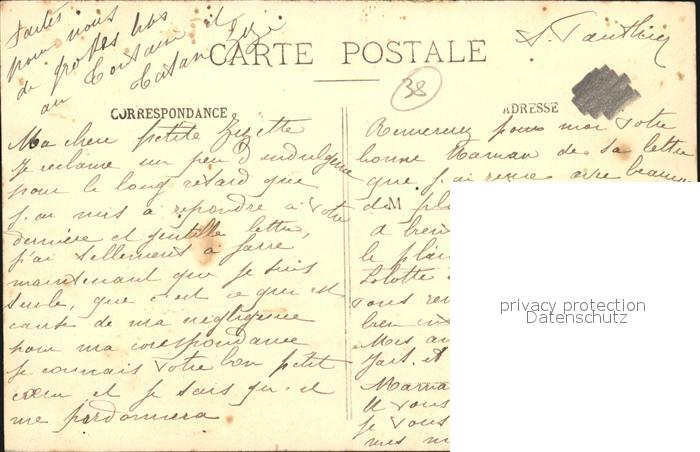 Faites
pour nous
de grosses bises
au Tontain et
Tatan Zizi
CARTE POSTALE
38
CORRESPONDANCE
ADRESSE
Ma chere petite Zizette
Je reclame un peu d'indulgence
pour le long retard que
j'ai mis a repondre a votre
derniere et gentille lettre,
j'ai tellement a faire
maintenant que je suis
seule, que c'est ce qui est
cause de ma negligence
pour ma corespondance
je connais votre bon petit
cœur et je sais qu'il
me pardonnera
Remerciez pour moi votre
bonne Maman de sa lettre
que j'ai reçue avec beaucou
M
a bien
le plais
Lolotte
vous
bien
Mes
fort et
Maman
vous
je vous
mes
privacy protection
Datenschutz